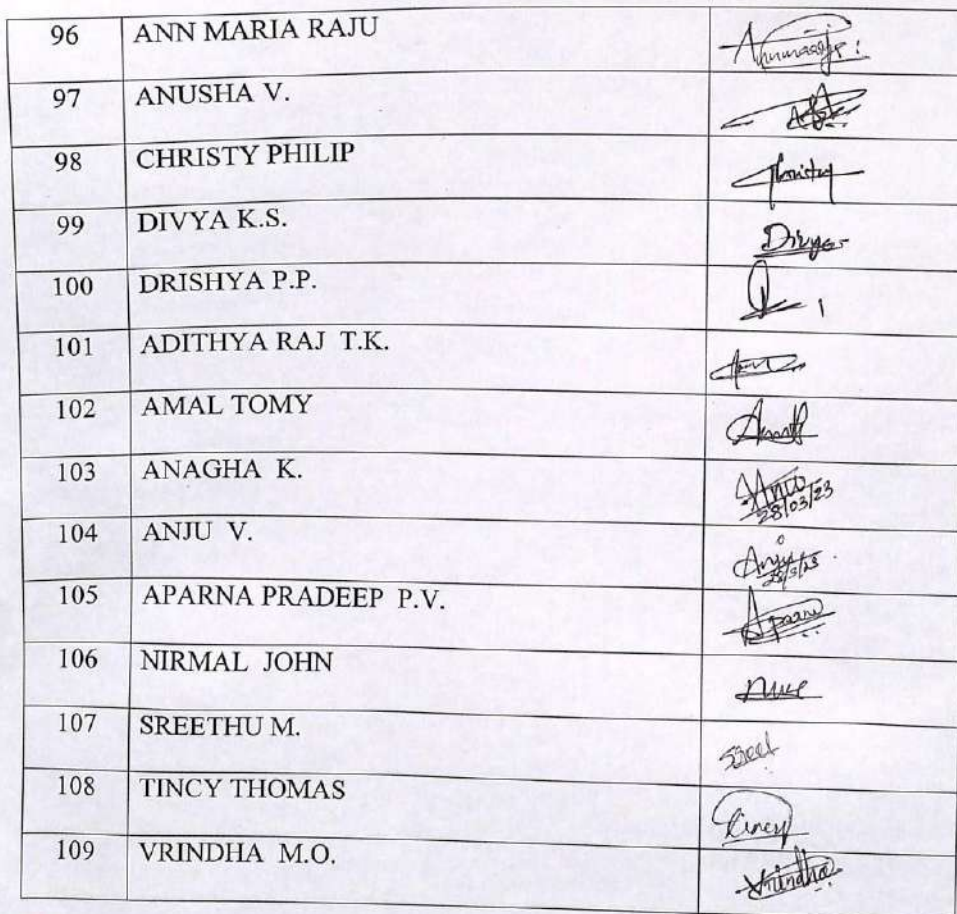 96 ANN MARIA RAJU
97 ANUSHA V.
98 CHRISTY PHILIP Christy
99 DIVYA K.S. Divya
100 DRISHYA P.P.
101 ADITHYA RAJ T.K.
102 AMAL TOMY
103 ANAGHA K.
28/03/23
104 ANJU V. Anju
28/3/23
105 APARNA PRADEEP P.V.
106 NIRMAL JOHN
107 SREETHU M. Sreet
108 TINCY THOMAS Tincy
109 VRINDHA M.O. Vrindha